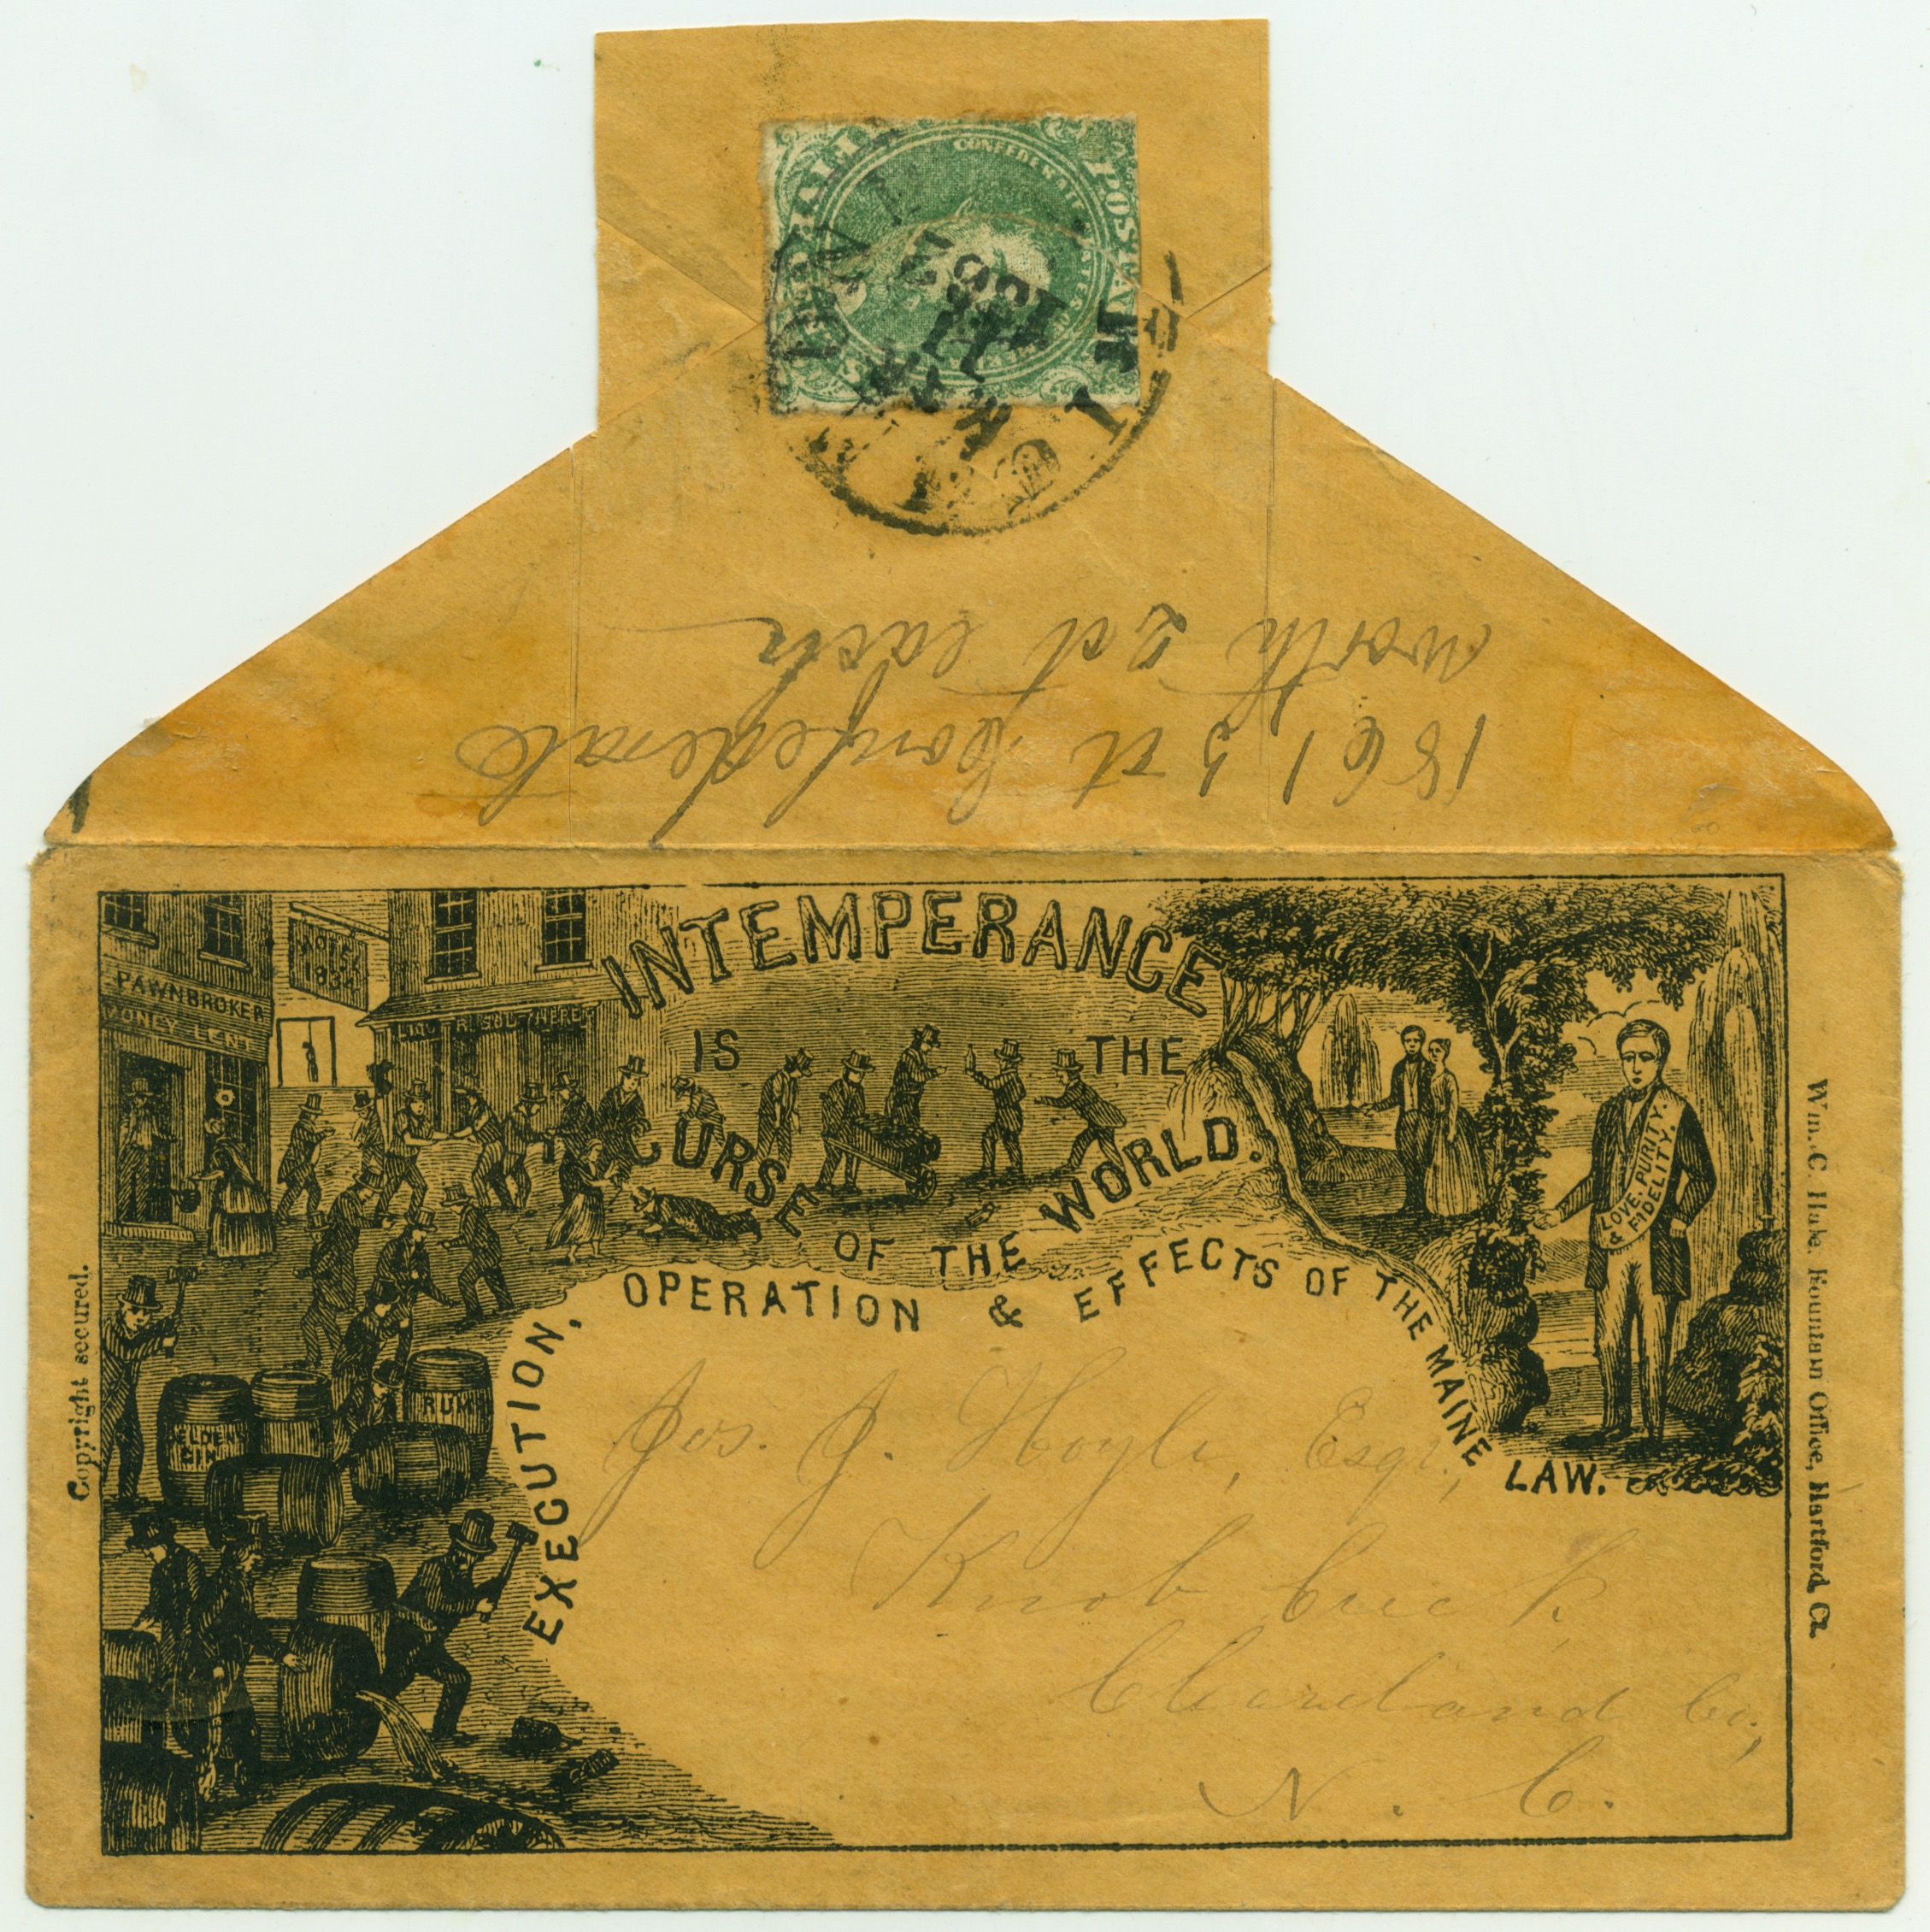 POSTAGE
CONFEDERATE STATES
FIVE
RICHMOND
MAR
1862
1861 5 ct Confederate
worth 2 ct each
INTEMPERANCE
IS THE
CURSE OF THE WORLD.
EXECUTION, OPERATION & EFFECTS OF THE MAINE LAW.
PAWNBROKER
MONEY LENT
HOTEL
1854
LOVE, PURITY,
& FIDELITY.
RUM
GIN
Copyright secured.
Wm. C. Hake. Fountain Office, Hartford, Ct.
Jos. J. Hoyle, Esqr.,
Knob Creek,
Cleaveland Co,
N. C.